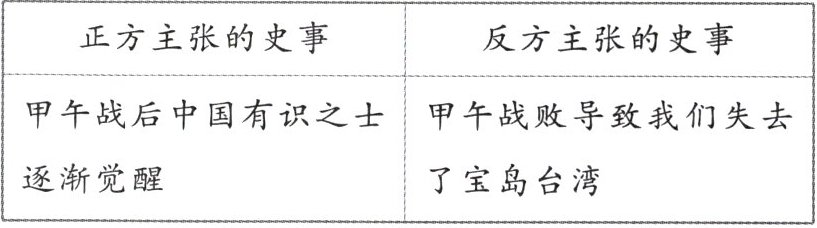 正方主张的史事
反方主张的史事
甲午战后中国有识之士
逐渐觉醒
甲午战败导致我们失去
了宝岛台湾